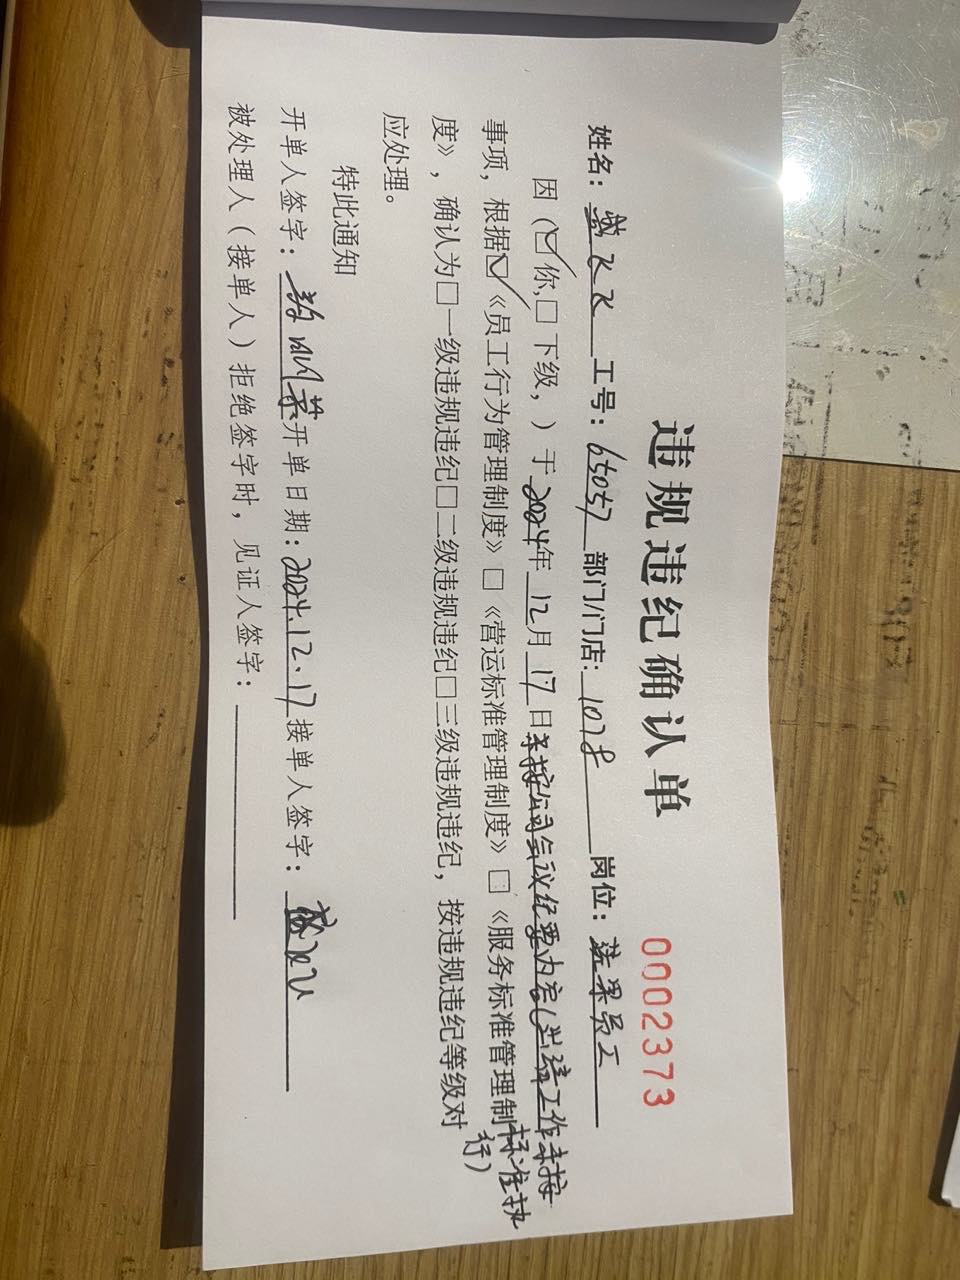 违规违纪确认单
0002373
姓名: 工号: 65057 部门/门店: 1078 岗位: 蔬果员工
因(☑你,□下级,)于2024年12月17日未按公司会议纪要内容(出清工作未按标准执行)
事项, 根据☑《员工行为管理制度》□《营运标准管理制度》□《服务标准管理制
度》, 确认为□一级违规违纪□二级违规违纪□三级违规违纪, 按违规违纪等级对
应处理。
特此通知
开单人签字: 开单日期: 2024.12.17 接单人签字:
被处理人(接单人)拒绝签字时, 见证人签字: